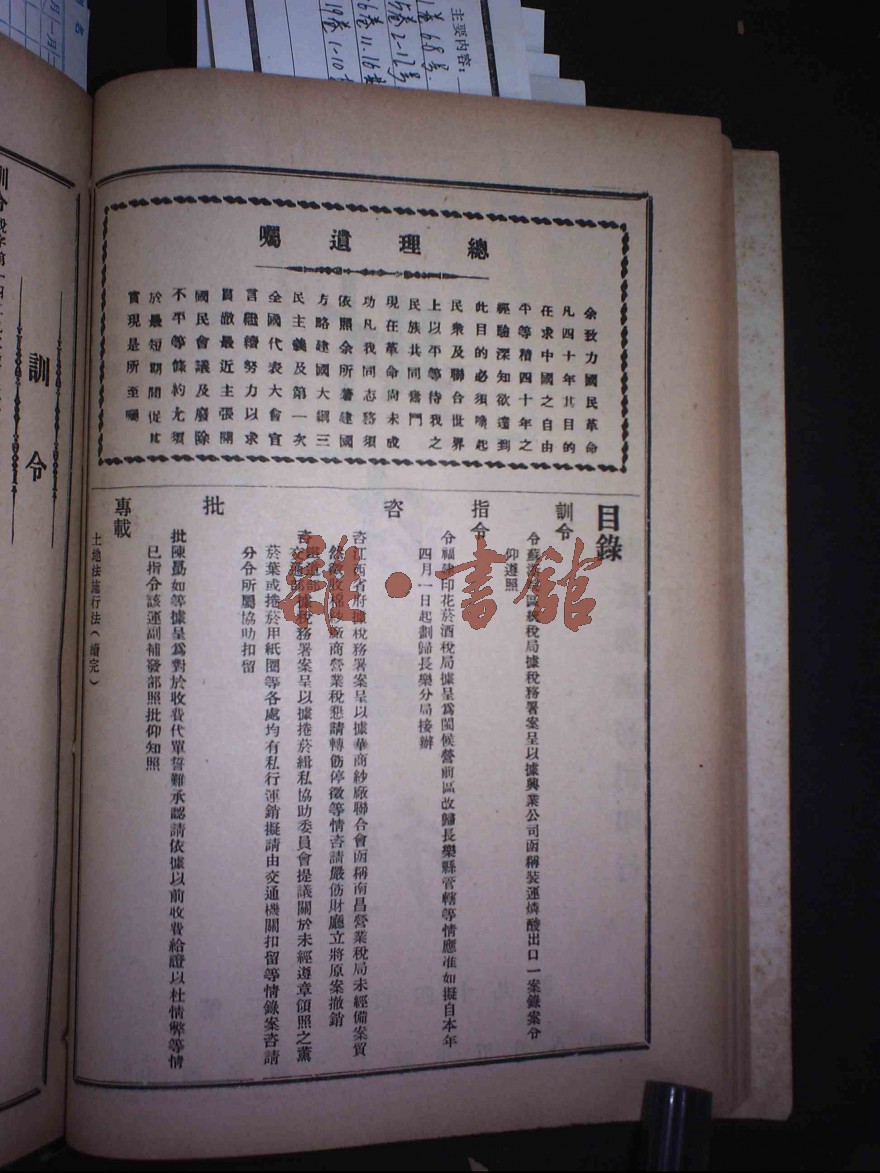 總理遺囑
余致力國民革命
凡四十年其目的
在求中國之自由
平等積四十年之
經驗深知欲達到
此目的必須喚起
民衆及聯合世界
上以平等待我之
民族共同奮鬥
現在革命尚未成
功凡我同志務須
依照余所著建國
方略建國大綱三
民主義及第一次
全國代表大會宣
言繼續努力以求
貫澈最近主張開
國民會議及廢除
不平等條約尤須
於最短期間促其
實現是所至囑
目錄
訓令
令蘇浙皖區統稅局據稅務署案呈以據興業公司函稱裝運燐酸出口一案錄案令
仰遵照
指令
令福建印花菸酒稅局據呈爲閩候營前區改歸長樂縣管轄等情應准如擬自本年
四月一日起劃歸長樂分局接辦
咨
咨江西省府據稅務署案呈以據華商紗廠聯合會函稱南昌營業稅局未經備案貿
然徵收棉紗廠商營業稅懇請轉飭停徵等情咨請嚴飭財廳立將原案撤銷
咨鐵道部交通部據稅務署案呈以據捲菸緝私協助委員會提議關於未經遵章領照之薰
菸葉或捲菸用紙圈等各處均有私行運銷擬請由交通機關扣留等情錄案咨請
分令所屬協助扣留
批
批陳勗如等據呈爲對於收費代單誓難承認請依據以前收費給證以杜情弊等情
已指令該運副補發部照批仰知照
專載
土地法施行法(續完)
訓令
主要內容:
雒·書館